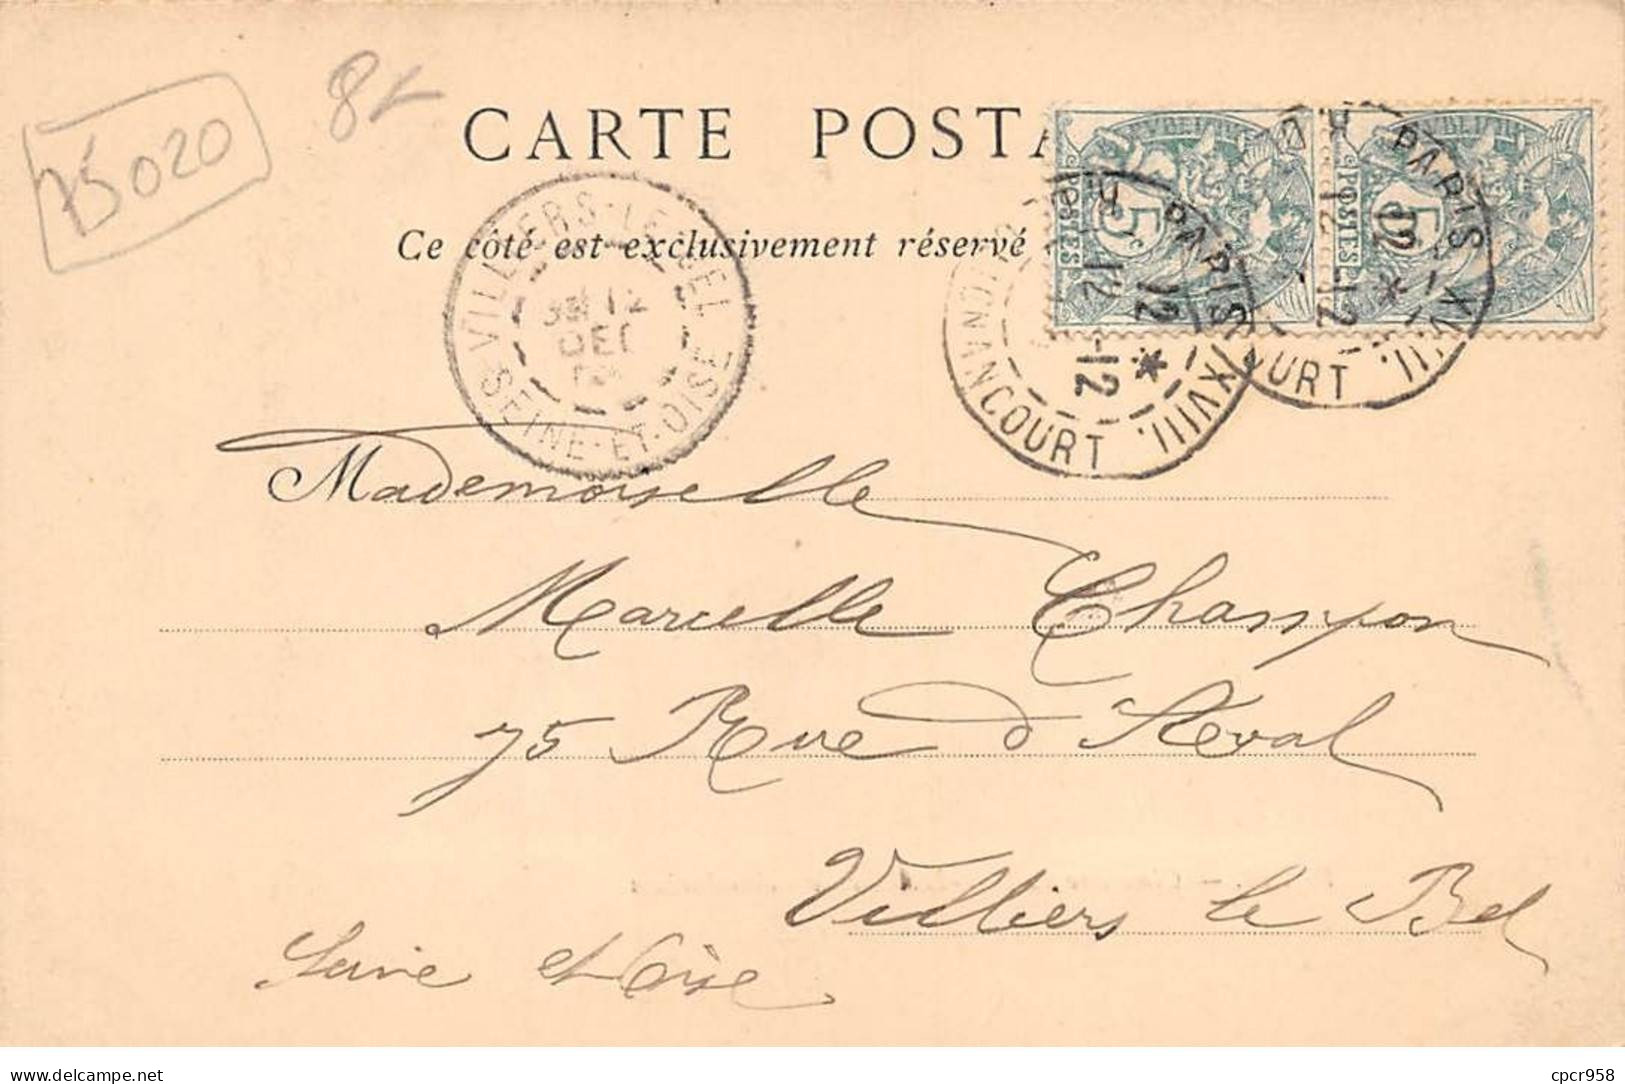 75020
8
CARTE POSTA
Ce côté est exclusivement réservé
VILLIERS-LE-BEL
12
DEC
SEINE-ET-OISE
POSTES 5c
POSTES 5
PARIS XVIII.
12
-12
COURT
PARIS XVIII.
12
-12
ANCOURT
Mademoiselle
Marcelle Champon
75 Rue d'
Villiers le Bel
Seine et Oise
delcampe.net
cpcr958